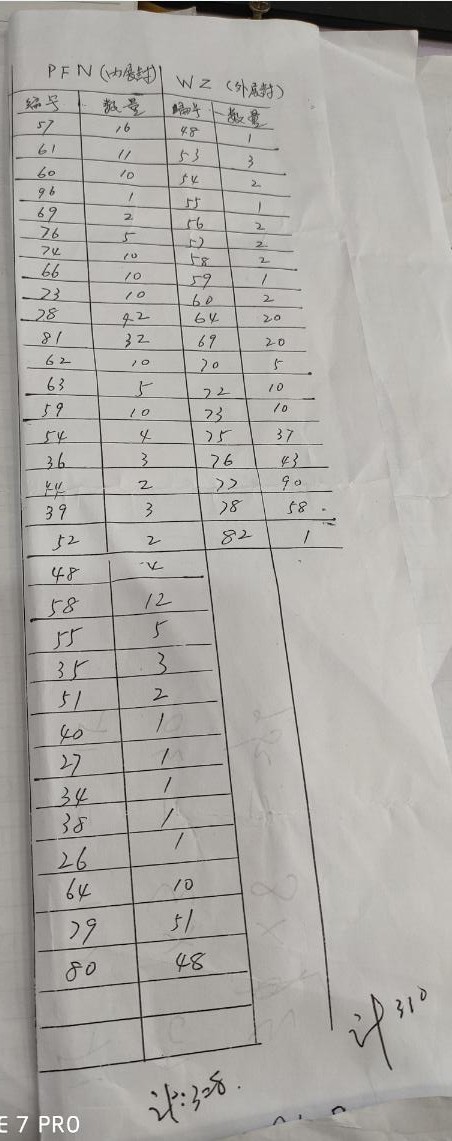 PFN(内展封) WZ (外展封)
编号 数量 编号 数量
57 16 48 1
61 11 53 3
60 10 54 2
96 1 55 1
69 2 56 2
76 5 57 2
74 10 58 2
66 10 59 1
73 10 60 2
78 42 64 20
81 32 69 20
62 10 70 5
63 5 72 10
59 10 73 10
54 4 75 37
36 3 76 43
44 2 77 90
39 3 78 58
52 2 82 1
48 4
58 12
55 5
35 3
51 2
40 1
27 1
34 1
38 1
26 1
64 10
79 51
80 48
计310
计:328.
E 7 PRO